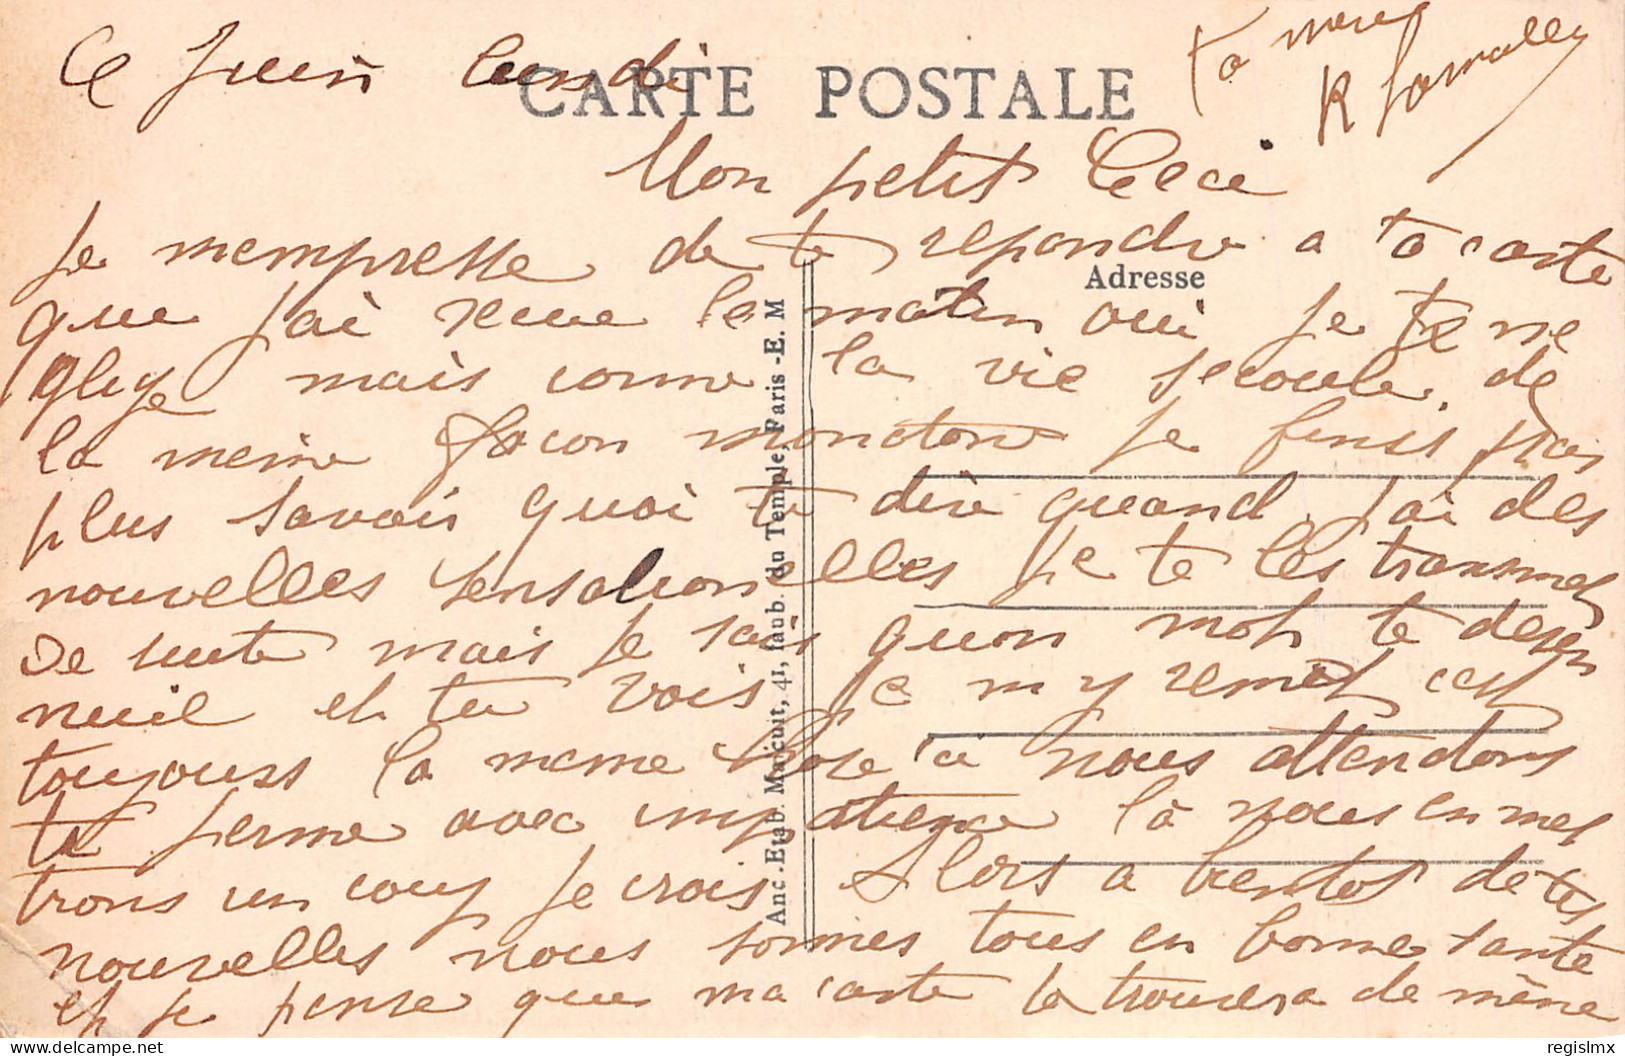 Ce Juin lundi
CARTE POSTALE
ta mere
R
Mon petit Ceci
Je mempresse de te repondre a ta carte
Adresse
que jai recue le matin oui je te ne
glige mais comme la vie secoule de
la meme façon monotone je finis pas
plus savoir quoi te dire quand jai des
nouvelles sensationelles je te les transmet
de suite mais je sais quon moti te desen
nuie et tu vois je m y remet cest
toujours la meme chose ici nous attendons
ta ferme avec impatience la nous en met
trons un coup je crois Alors a bientot de tes
nouvelles nous sommes tous en bonne sante
et je pense que ma carte ta trouvera de même
Anc. Etab. Malcuit, 41, faub. du Temple, Paris -E. M
regislmx